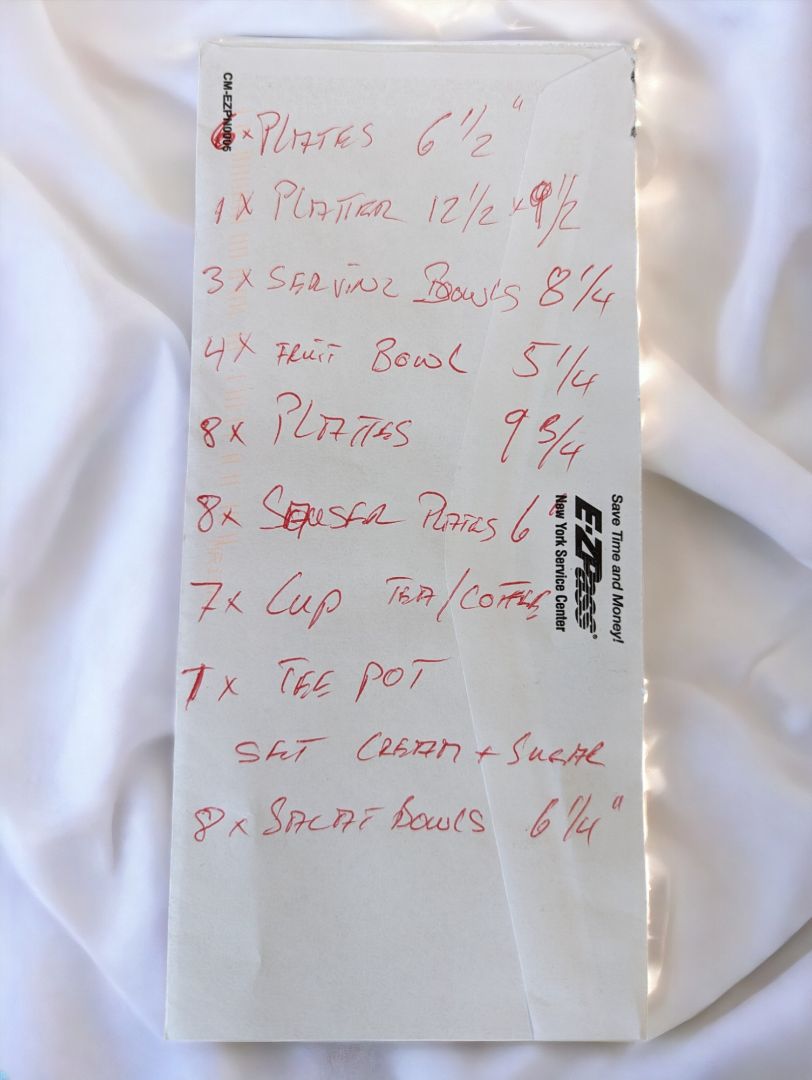 CM-EZPN0006
6 x PLATES 6 1/2"
1 X PLATTER 12 1/2 x 9 1/2
3 X SERVINZ BOWLS 8 1/4
4 X FRUIT BOWL 5 1/4
8 x PLATTES 9 3/4
8 x SAUSER PLATES 6"
7 x CUP TEA/COFFEE
1 x TEE POT
SET CREAM + SUGAR
8 x SALAT BOWLS 6 1/4"
Save Time and Money!
E-ZPass®
New York Service Center